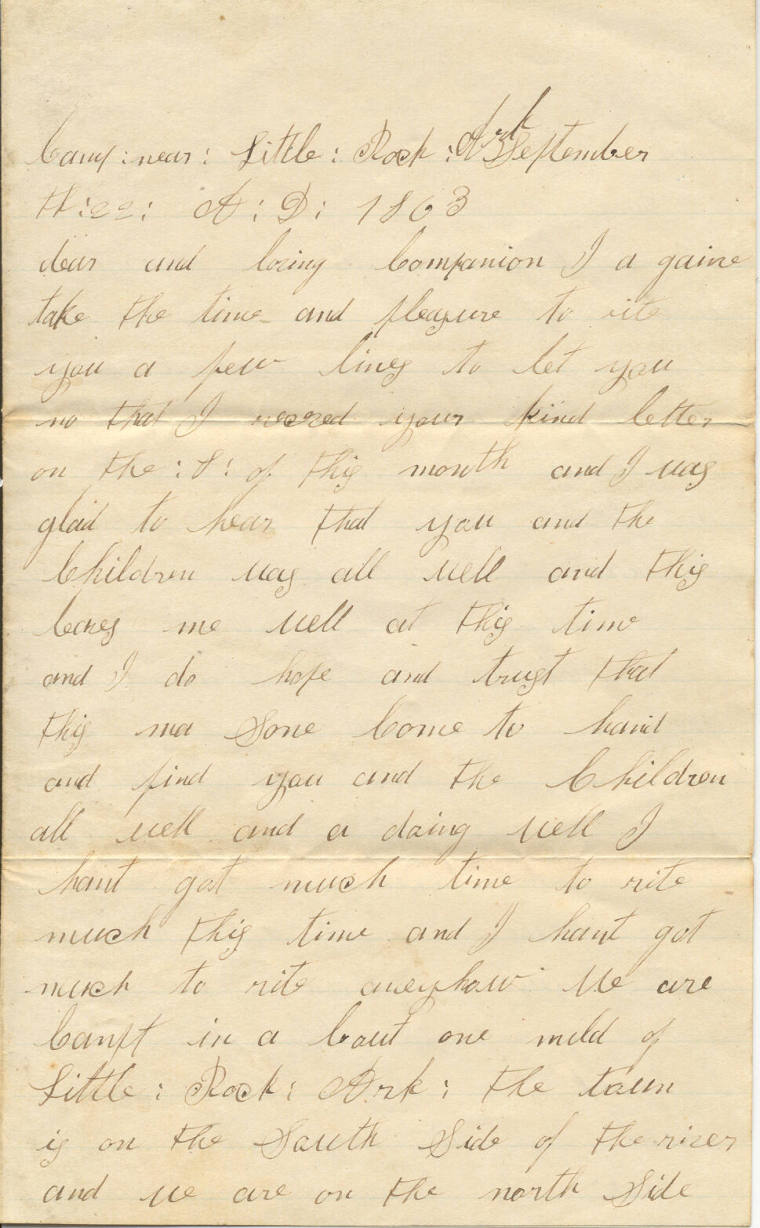 Camp : near : Little : Rock : Ark September
th : 22 : A : D : 1863
dear and loving Companion I a gaine
take the time and pleasure to rite
you a few lines to let you
no that I reseved your kind letter
on the : 8 : of this month and I was
glad to hear that you and the
Children was all well and this
leaves me well at this time
and I do hope and trust that
this ma Sone Come to hand
and find you and the Children
all well and a doing well I
hant got much time to rite
much this time and I hant got
much to rite aneyhow We are
Campt in a bout one mild of
Little : Rock : Ark : the town
is on the South Side of the river
and we are on the north Side